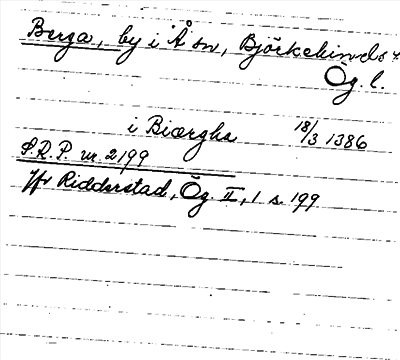 Berga, by i Å sn, Björkekinds h
Ög. l.
i Biærgha 18/3 1386
S.R.P. nr. 2199
Jfr Ridderstad, Ög. II, 1 s. 199